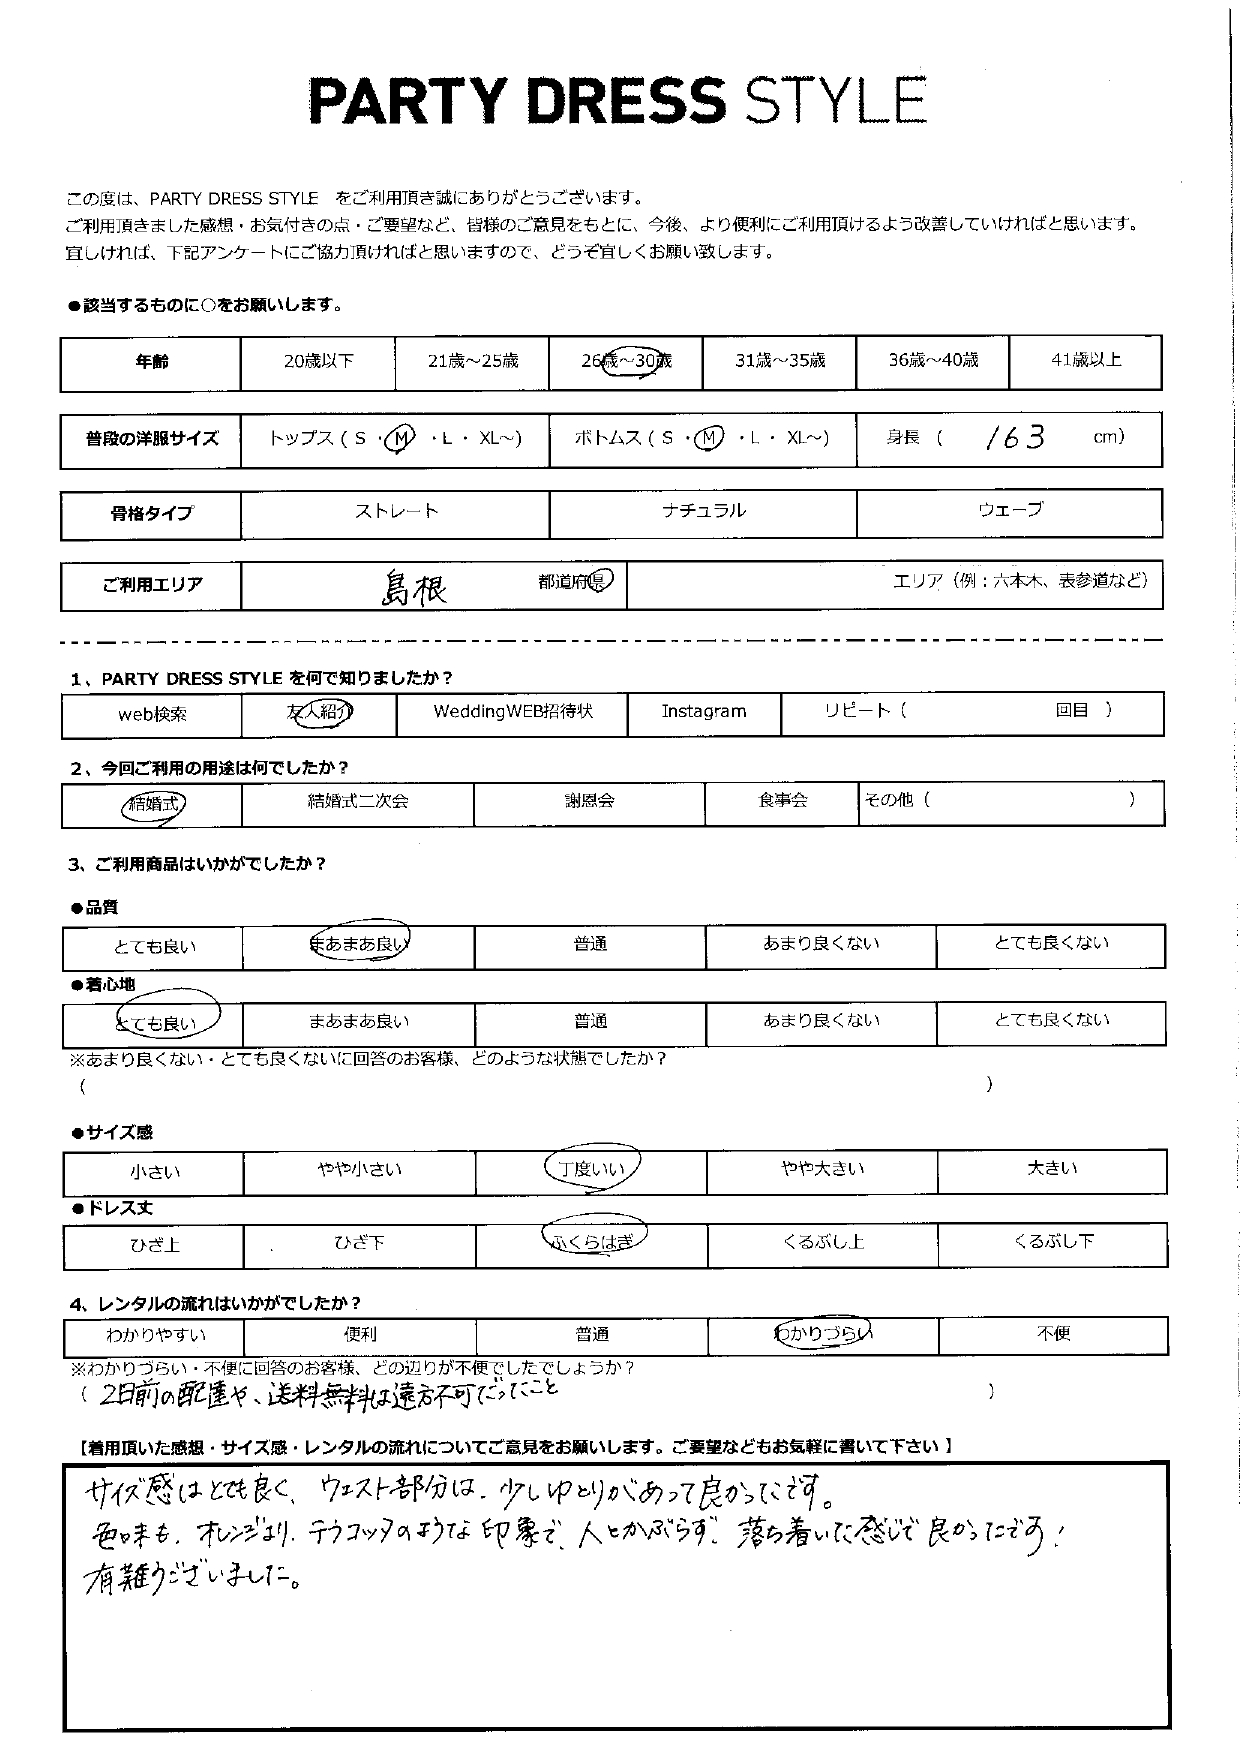 PARTY DRESS STYLE
この度は、PARTY DRESS STYLE をご利用頂き誠にありがとうございます。
ご利用頂きました感想・お気付きの点・ご要望など、皆様のご意見をもとに、今後、より便利にご利用頂けるよう改善していければと思います。
宜しければ、下記アンケートにご協力頂ければと思いますので、どうぞ宜しくお願い致します。
●該当するものに○をお願いします。
年齢 20歳以下 21歳～25歳 26歳～30歳 31歳～35歳 36歳～40歳 41歳以上
普段の洋服サイズ トップス ( S ・ M ・ L ・ XL～) ボトムス ( S ・ M ・ L ・ XL～) 身長 ( 163 cm)
骨格タイプ ストレート ナチュラル ウェーブ
ご利用エリア 島根 都道府県 エリア（例：六本木、表参道など）
1、PARTY DRESS STYLE を何で知りましたか？
web検索 友人紹介 WeddingWEB招待状 Instagram リピート ( 回目 )
2、今回ご利用の用途は何でしたか？
結婚式 結婚式二次会 謝恩会 食事会 その他 ( )
3、ご利用商品はいかがでしたか？
●品質
とても良い まあまあ良い 普通 あまり良くない とても良くない
●着心地
とても良い まあまあ良い 普通 あまり良くない とても良くない
※あまり良くない・とても良くないに回答のお客様、どのような状態でしたか？
( )
●サイズ感
小さい やや小さい 丁度いい やや大きい 大きい
●ドレス丈
ひざ上 ひざ下 ふくらはぎ くるぶし上 くるぶし下
4、レンタルの流れはいかがでしたか？
わかりやすい 便利 普通 わかりづらい 不便
※わかりづらい・不便に回答のお客様、どの辺りが不便でしたでしょうか？
( 2日前の配達や、送料無料は遠方不可だったこと )
【着用頂いた感想・サイズ感・レンタルの流れについてご意見をお願いします。ご要望などもお気軽に書いて下さい 】
サイズ感はとても良く、ウエスト部分は、少しゆとりがあって良かったです。
色味も、オレンジより、テラコッタのような印象で、人とかぶらず、落ち着いた感じで良かったです！
有難うございました。